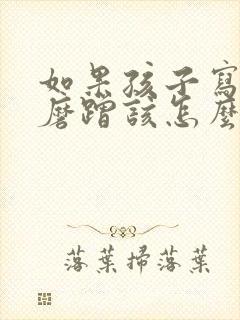 如果孩子寫
磨蹭該怎麼
落葉掃落葉